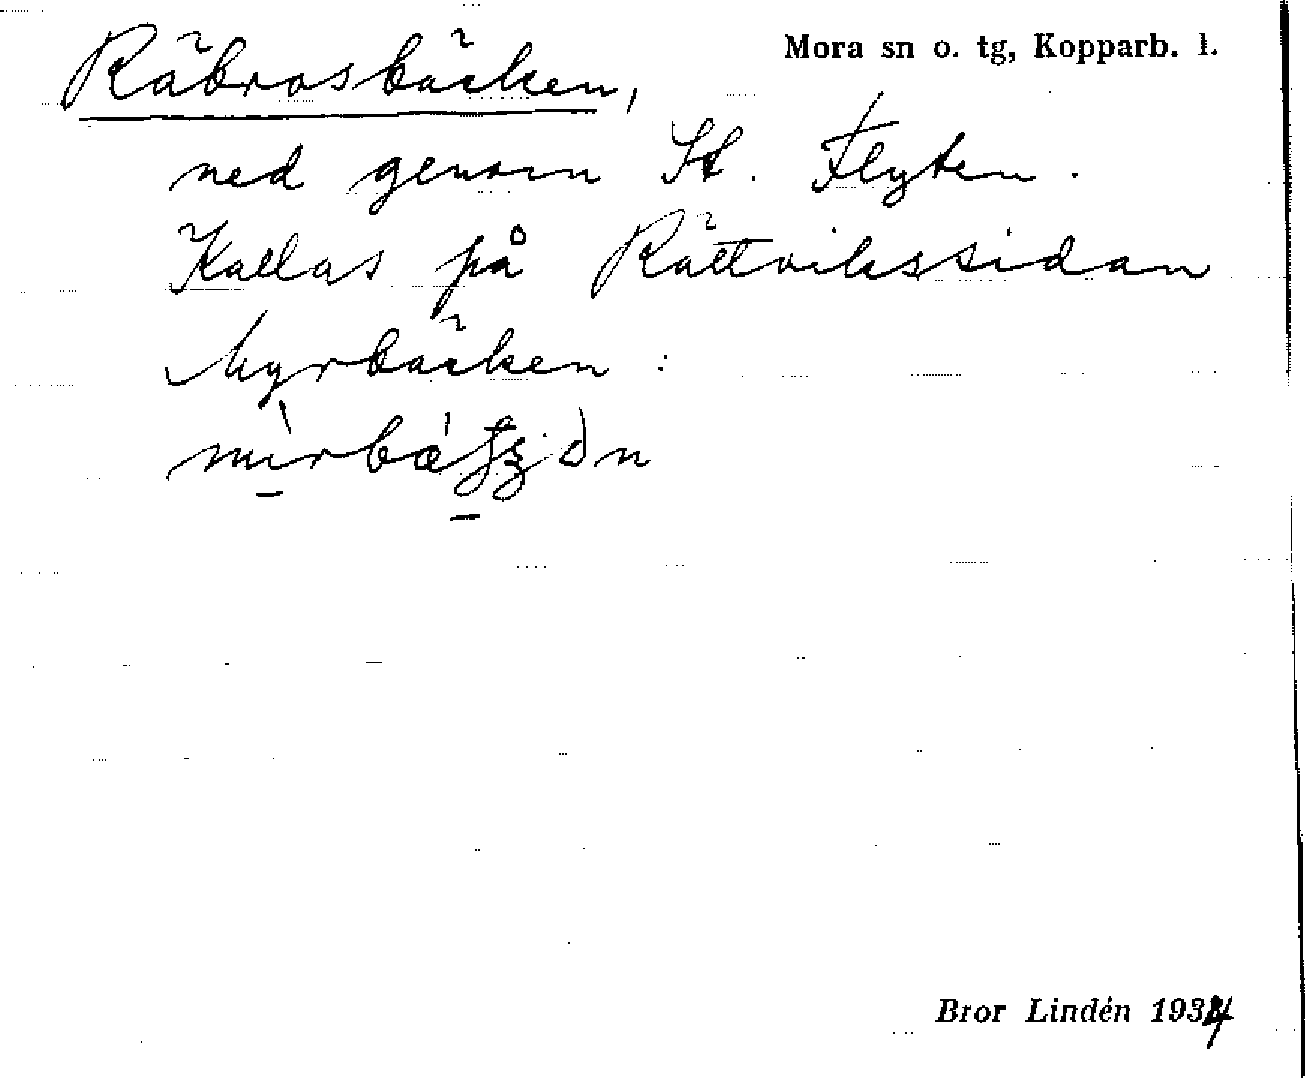 Räbrosbäcken, Mora sn o. tg, Kopparb. l.
ned genom St. Flyten.
Kallas på Rättvikssidan
Myrbäcken:
Bror Lindén 1934